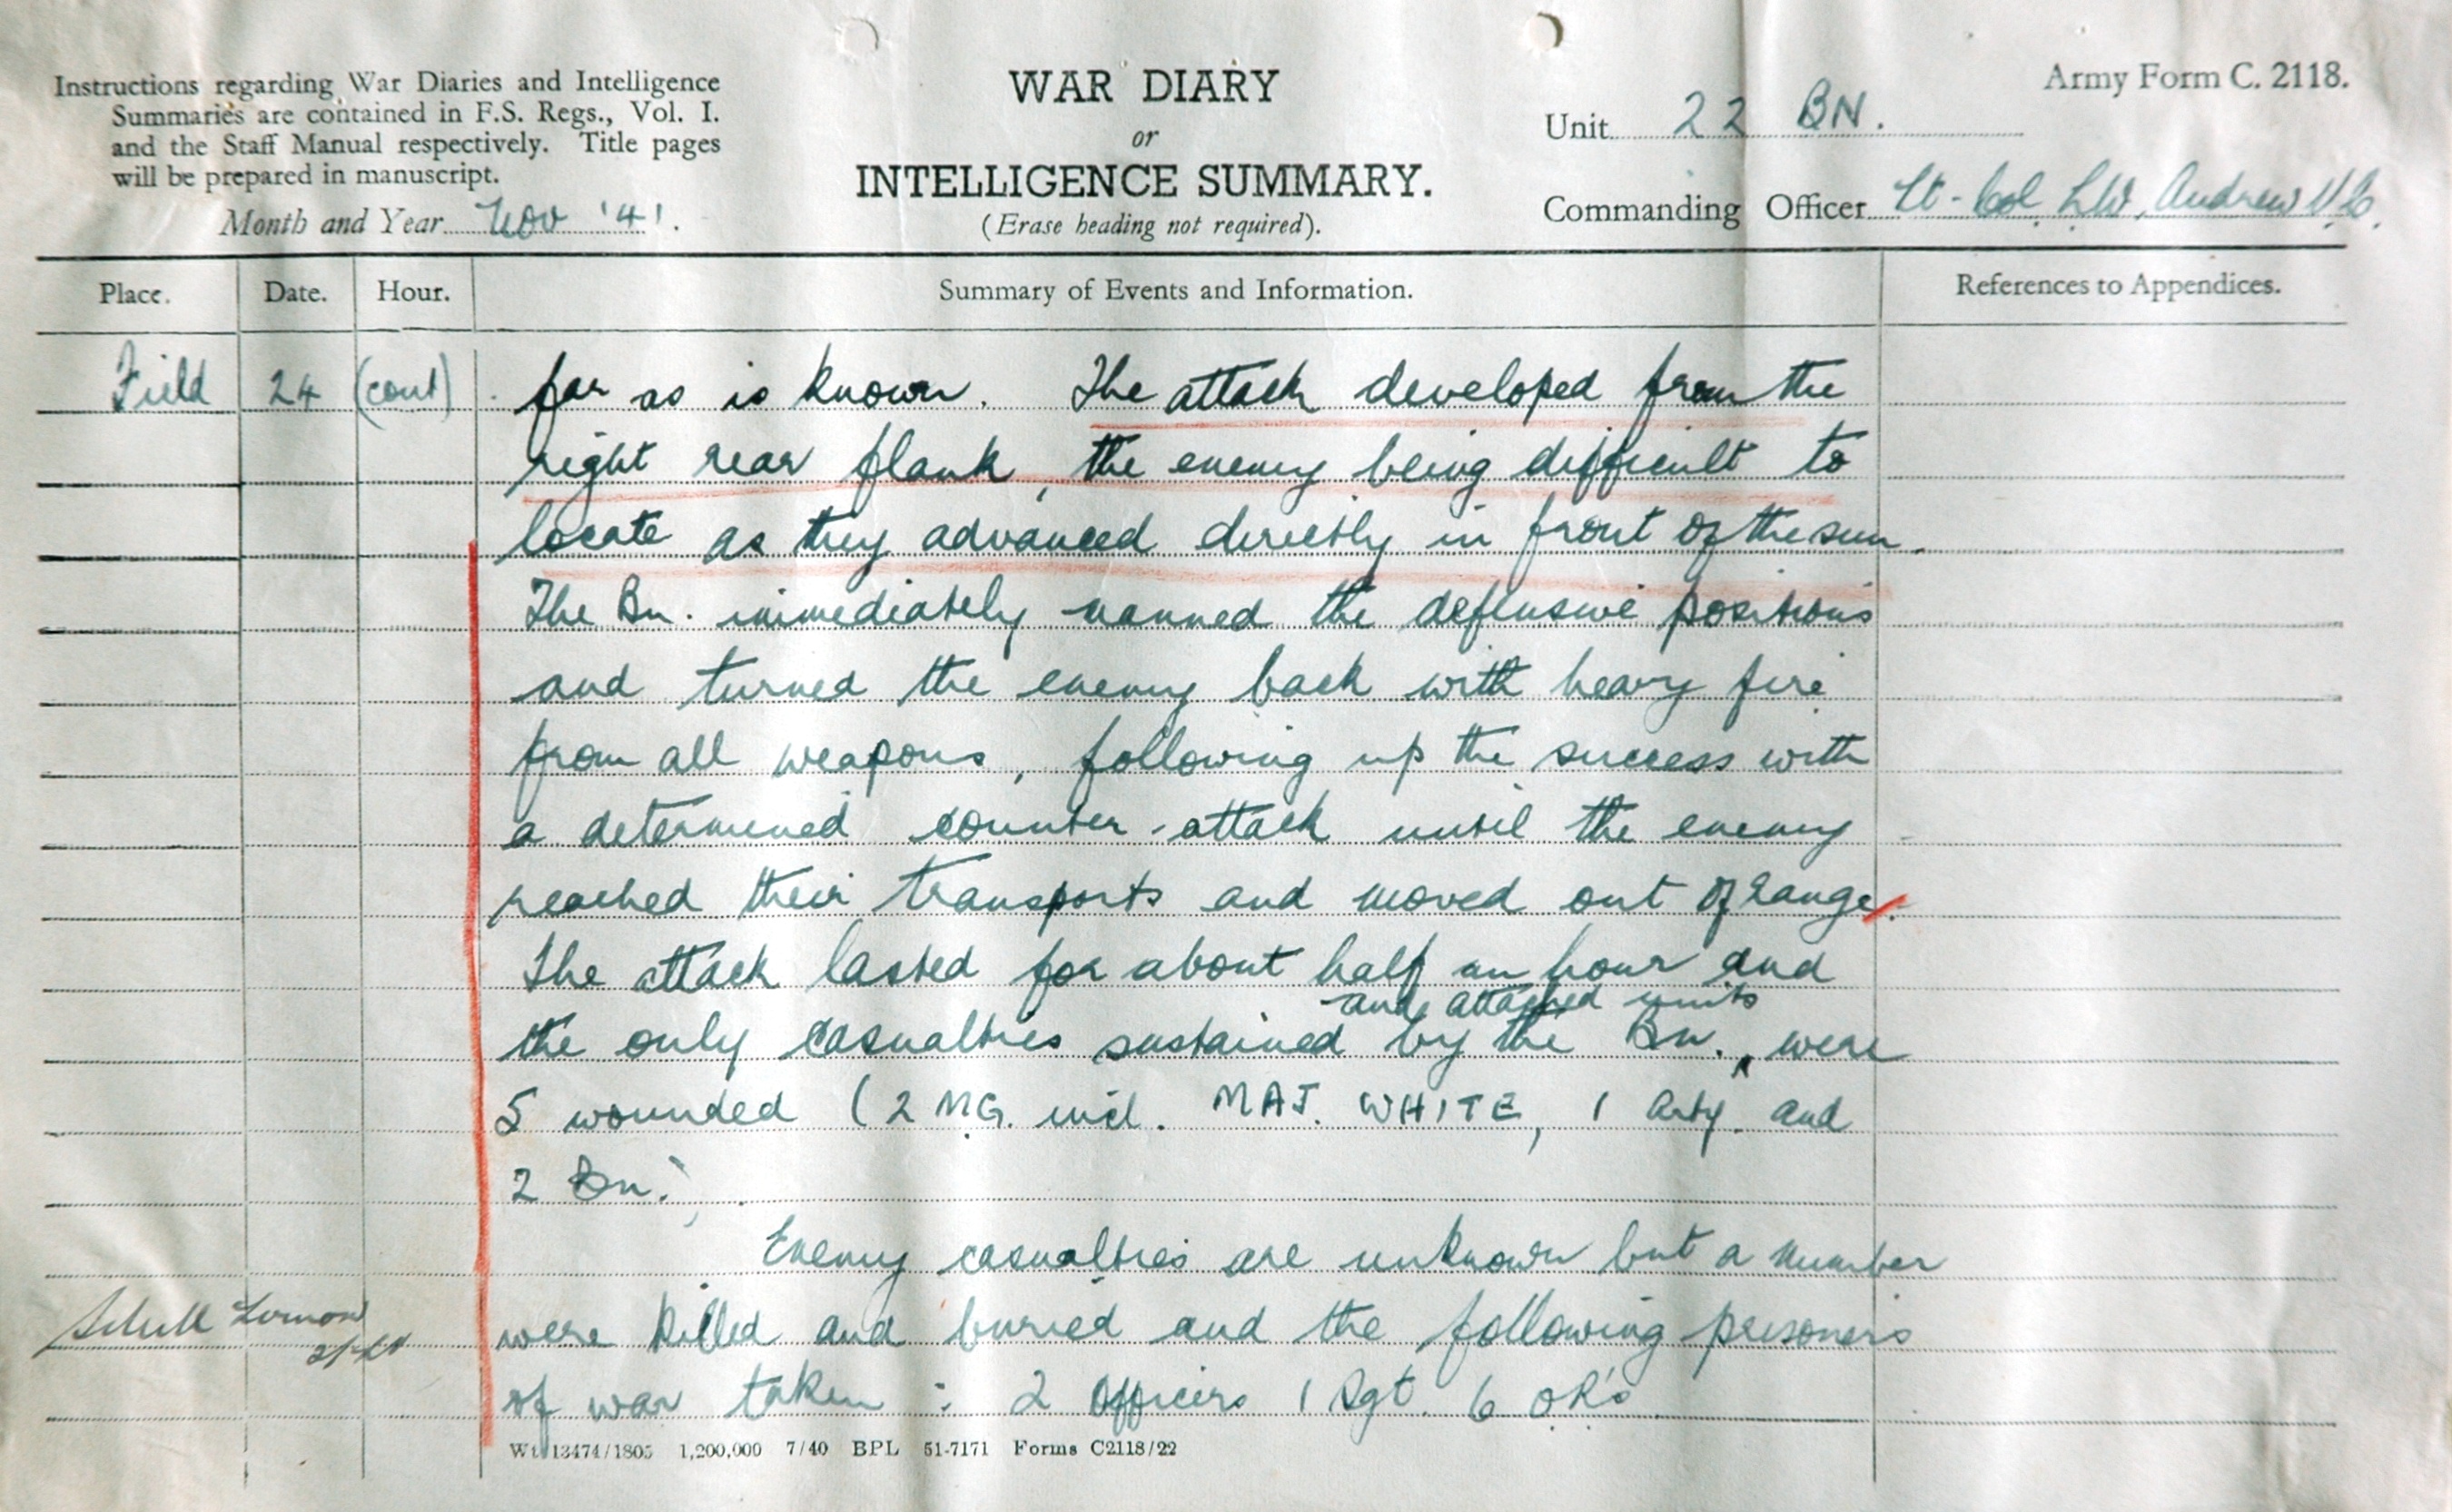 Instructions regarding War Diaries and Intelligence
Summaries are contained in F.S. Regs., Vol. I.
and the Staff Manual respectively. Title pages
will be prepared in manuscript.
Month and Year Nov '41.
WAR DIARY
or
INTELLIGENCE SUMMARY.
(Erase heading not required).
Army Form C. 2118.
Unit 22 BN.
Commanding Officer Lt-Col L.W. Andrew V.C.
Place. Date. Hour. Summary of Events and Information. References to Appendices.
Field 24 (cont) far as is known. The attack developed from the
right rear flank, the enemy being difficult to
locate as they advanced directly in front of the sun.
The Bn. immediately manned the defensive positions
and turned the enemy back with heavy fire
from all weapons, following up the success with
a determined counter-attack until the enemy
reached their transports and moved out of range.
The attack lasted for about half an hour and
and attached units
the only casualties sustained by the Bn. were
5 wounded (2 M.G. incl. MAJ. WHITE, 1 Arty. and
2 Bn.)
Enemy casualties are unknown but a number
were killed and buried and the following prisoners
of war taken : 2 Officers 1 Sgt. 6 OR's
Wt 13474/1805 1,200,000 7/40 BPL 51-7171 Forms C2118/22